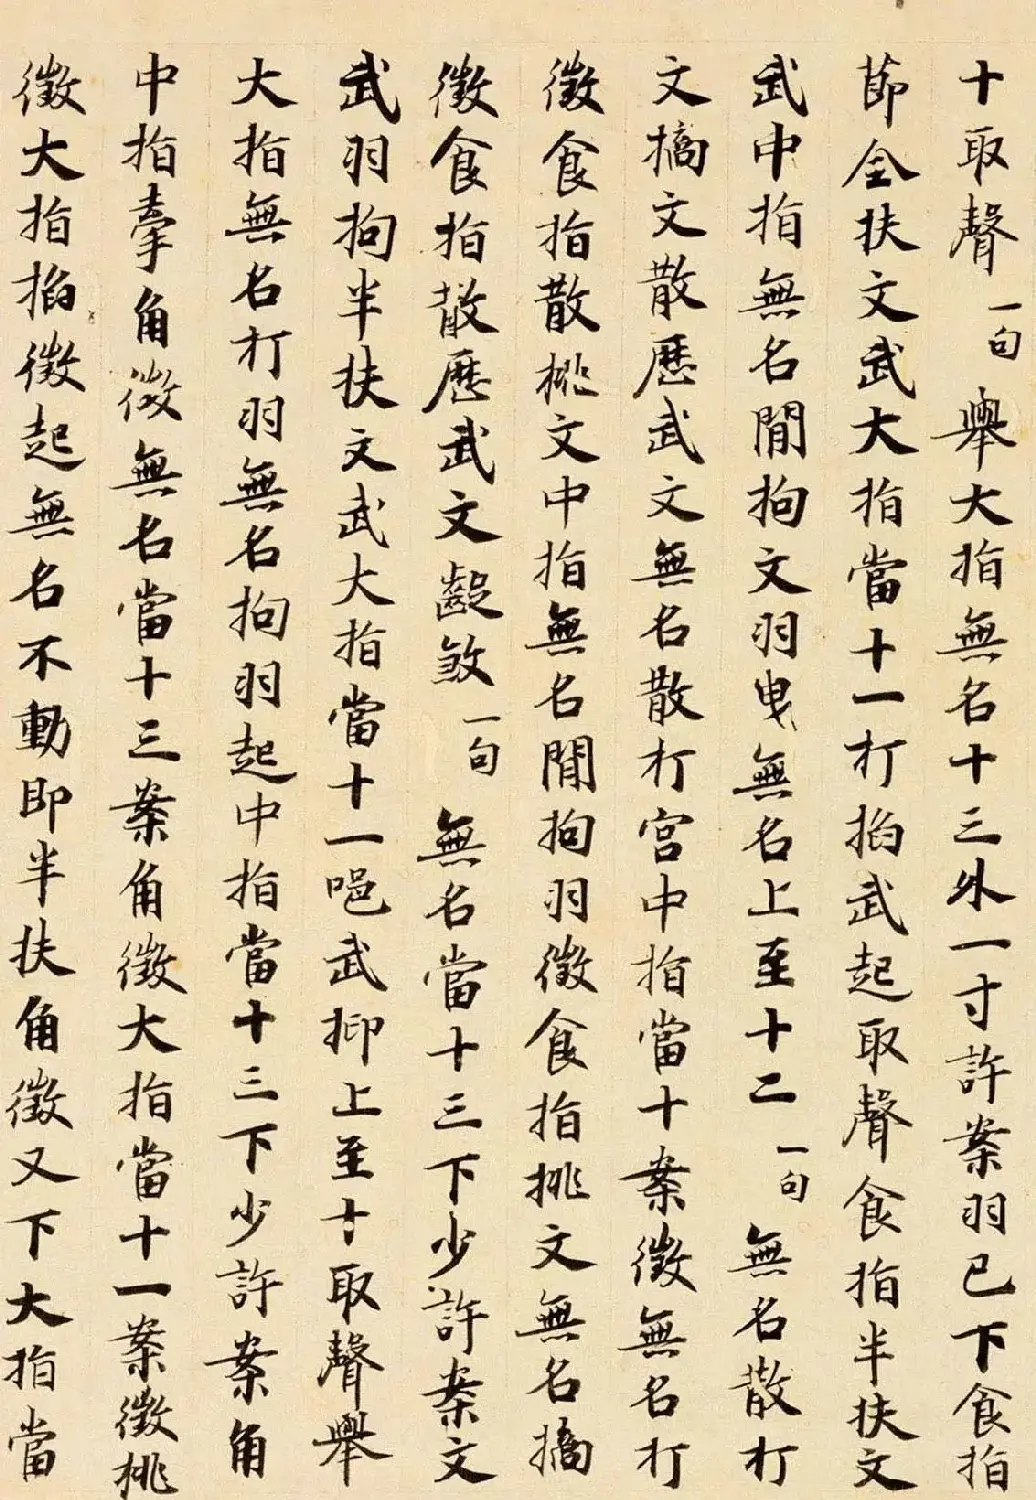 十取聲一句舉大指無名十三外一寸許案羽已下食指
節全扶文武大指當十一打掐武起取聲食指半扶文
武中指無名間拘文羽曳無名上至十二一句無名散打
文擿文散歷武文無名散打宮中指當十案徵無名打
徵食指散挑文中指無名間拘羽徵食指挑文無名擿
徵食指散歷武文齪煞一句無名當十三下少許案文
武羽拘半扶文武大指當十一唈武抑上至十取聲舉
大指無名打羽無名拘羽起中指當十三下少許案角
中指牽角徵無名當十三案角徵大指當十一案徵挑
徵大指掐徵起無名不動即半扶角徵又下大指當